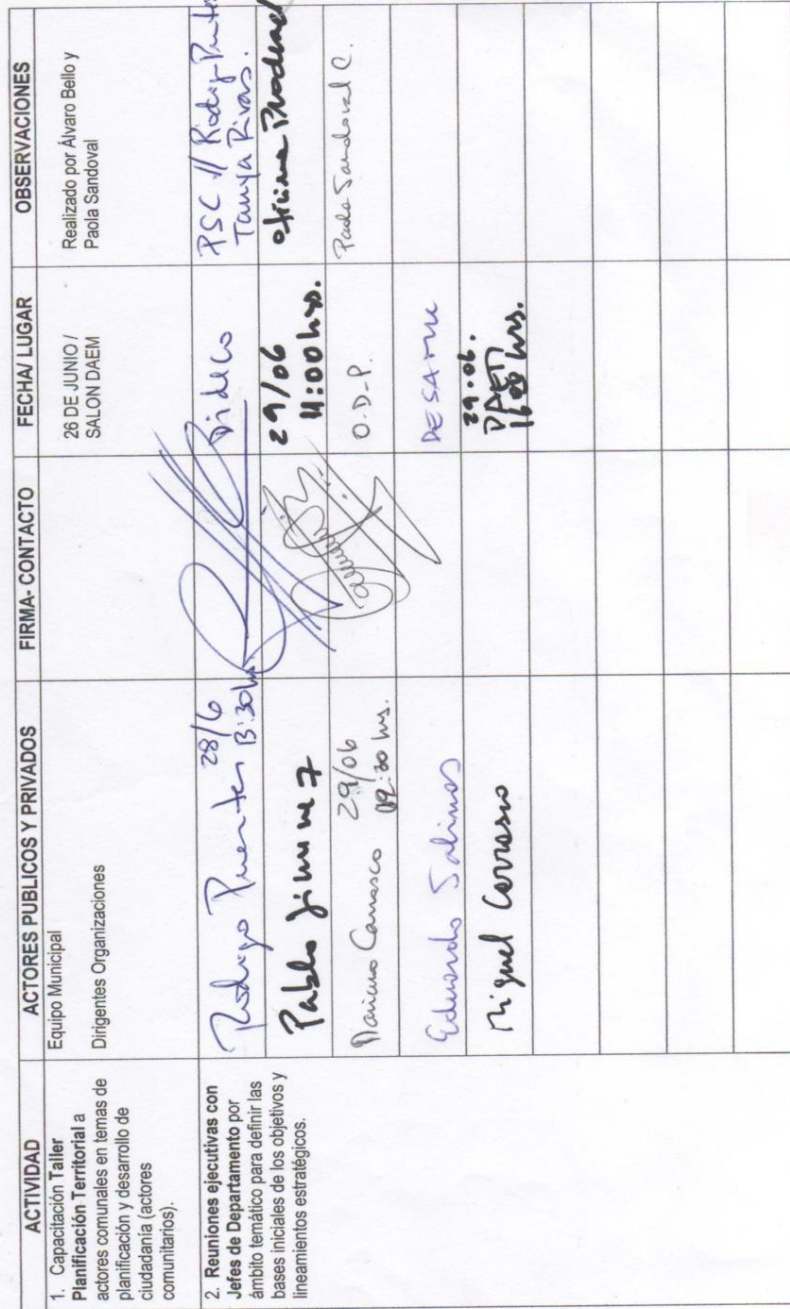 ACTIVIDAD
ACTORES PUBLICOS Y PRIVADOS
FIRMA- CONTACTO
FECHA/ LUGAR
OBSERVACIONES
1. Capacitación Taller
Planificación Territorial a
actores comunales en temas de
planificación y desarrollo de
ciudadanía (actores
comunitarios).
Equipo Municipal
Dirigentes Organizaciones
26 DE JUNIO /
SALON DAEM
Realizado por Álvaro Bello y
Paola Sandoval
2. Reuniones ejecutivas con
Jefes de Departamento por
ámbito temático para definir las
bases iniciales de los objetivos y
lineamientos estratégicos.
Rodrigo Puentes 28/6
Dideco
PSC //
Tanya Rivas.
Pablo
29/06
11:00 hrs.
Oficina
Mariano Carrasco 29/06
hrs.
O.D.P.
Paola Sandoval C.
Eduardo Salinas
Miguel Carrasco
29.06.
hrs.